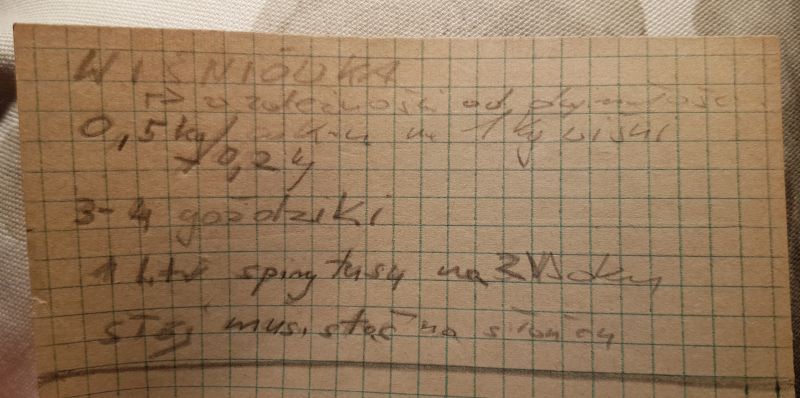 WIŚNIÓWKA
w zależności od
0,5 kg cukru na 1 kg wiśni
+ 0,2 kg
3-4 goździki
1 litr spirytusu na 2
słój musi stać na słońcu